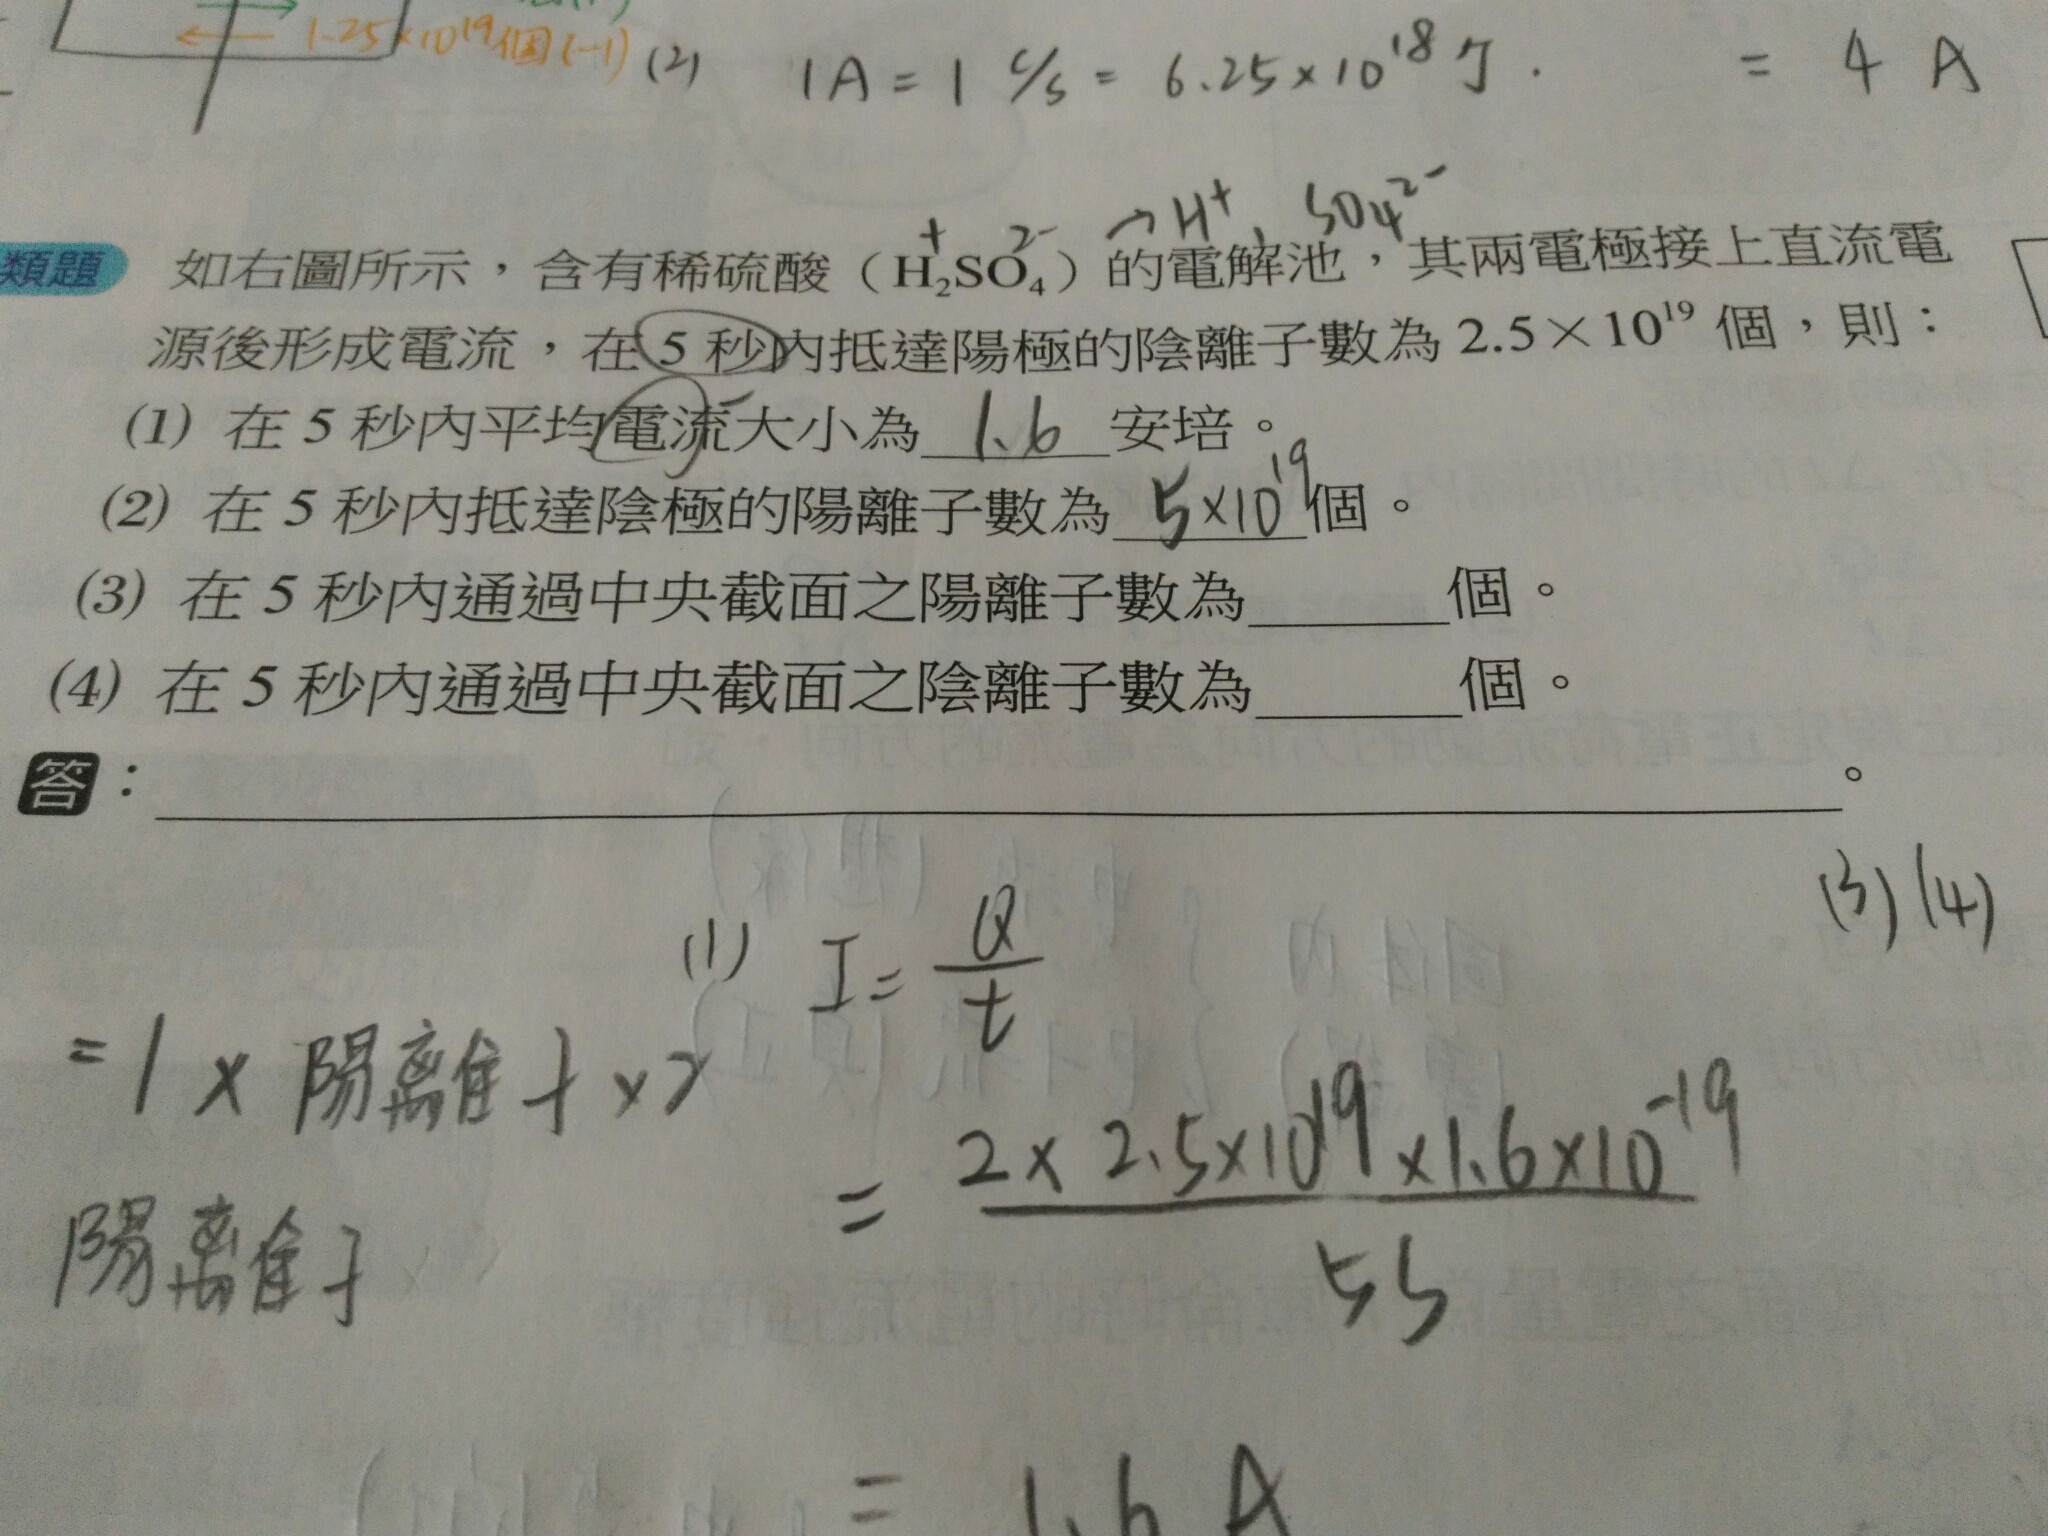 1.25×10¹⁹個(-1)
(2) 1A = 1 C/s = 6.25×10¹⁸ 個.
= 4 A
→ H⁺, SO₄²⁻
+ 2-
類題 如右圖所示，含有稀硫酸（H₂SO₄）的電解池，其兩電極接上直流電
源後形成電流，在 5 秒內抵達陽極的陰離子數為 2.5×10¹⁹ 個，則：
(1) 在 5 秒內平均電流大小為 1.6 安培。
(2) 在 5 秒內抵達陰極的陽離子數為 5×10¹⁹ 個。
(3) 在 5 秒內通過中央截面之陽離子數為______個。
(4) 在 5 秒內通過中央截面之陰離子數為______個。
答：______。
(3)(4)
(1) I = Q/t
= 1 × 陽離子 × 2
= 2×2.5×10¹⁹×1.6×10⁻¹⁹ / 5s
陽離子
= 1.6 A